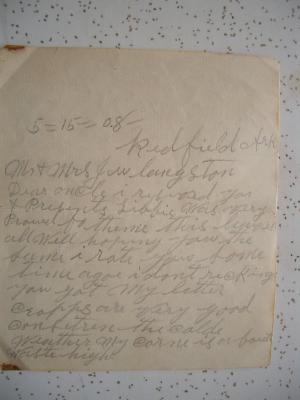 5-15-08-
Redfield Ark
Mr & Mrs J W Langston
Dear ones i recived you
& Presents Libbie was very
Proud to theme this leaves
all well hoping you the
same i rote you some
time agoe i dont recking
you got My letter
Cropps are very good
Conts the Colde
Weather My Corne is a bout
waste high